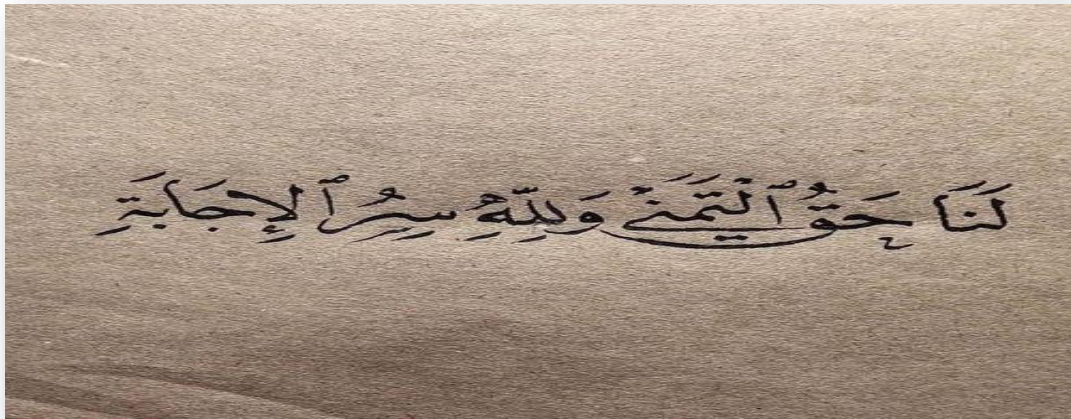 لَنَا حَقُّ ٱلْتَمَنْي وَلِلّهِ سِرُ ٱلإِجَابَةِ